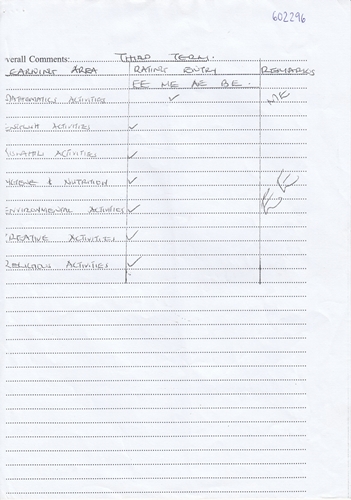 602296
verall Comments: THIRD TERM.
EARNING AREA RATING ENTRY REMARKS
EE ME AE BE.
MATHEMATICS ACTIVITIES ✓ ME
ENGLISH ACTIVITIES ✓
KISWAHILI ACTIVITIES ✓
HYGIENE & NUTRITION ✓ EE
ENVIRONMENTAL ACTIVITIES ✓
CREATIVE ACTIVITIES ✓
RELIGIOUS ACTIVITIES ✓